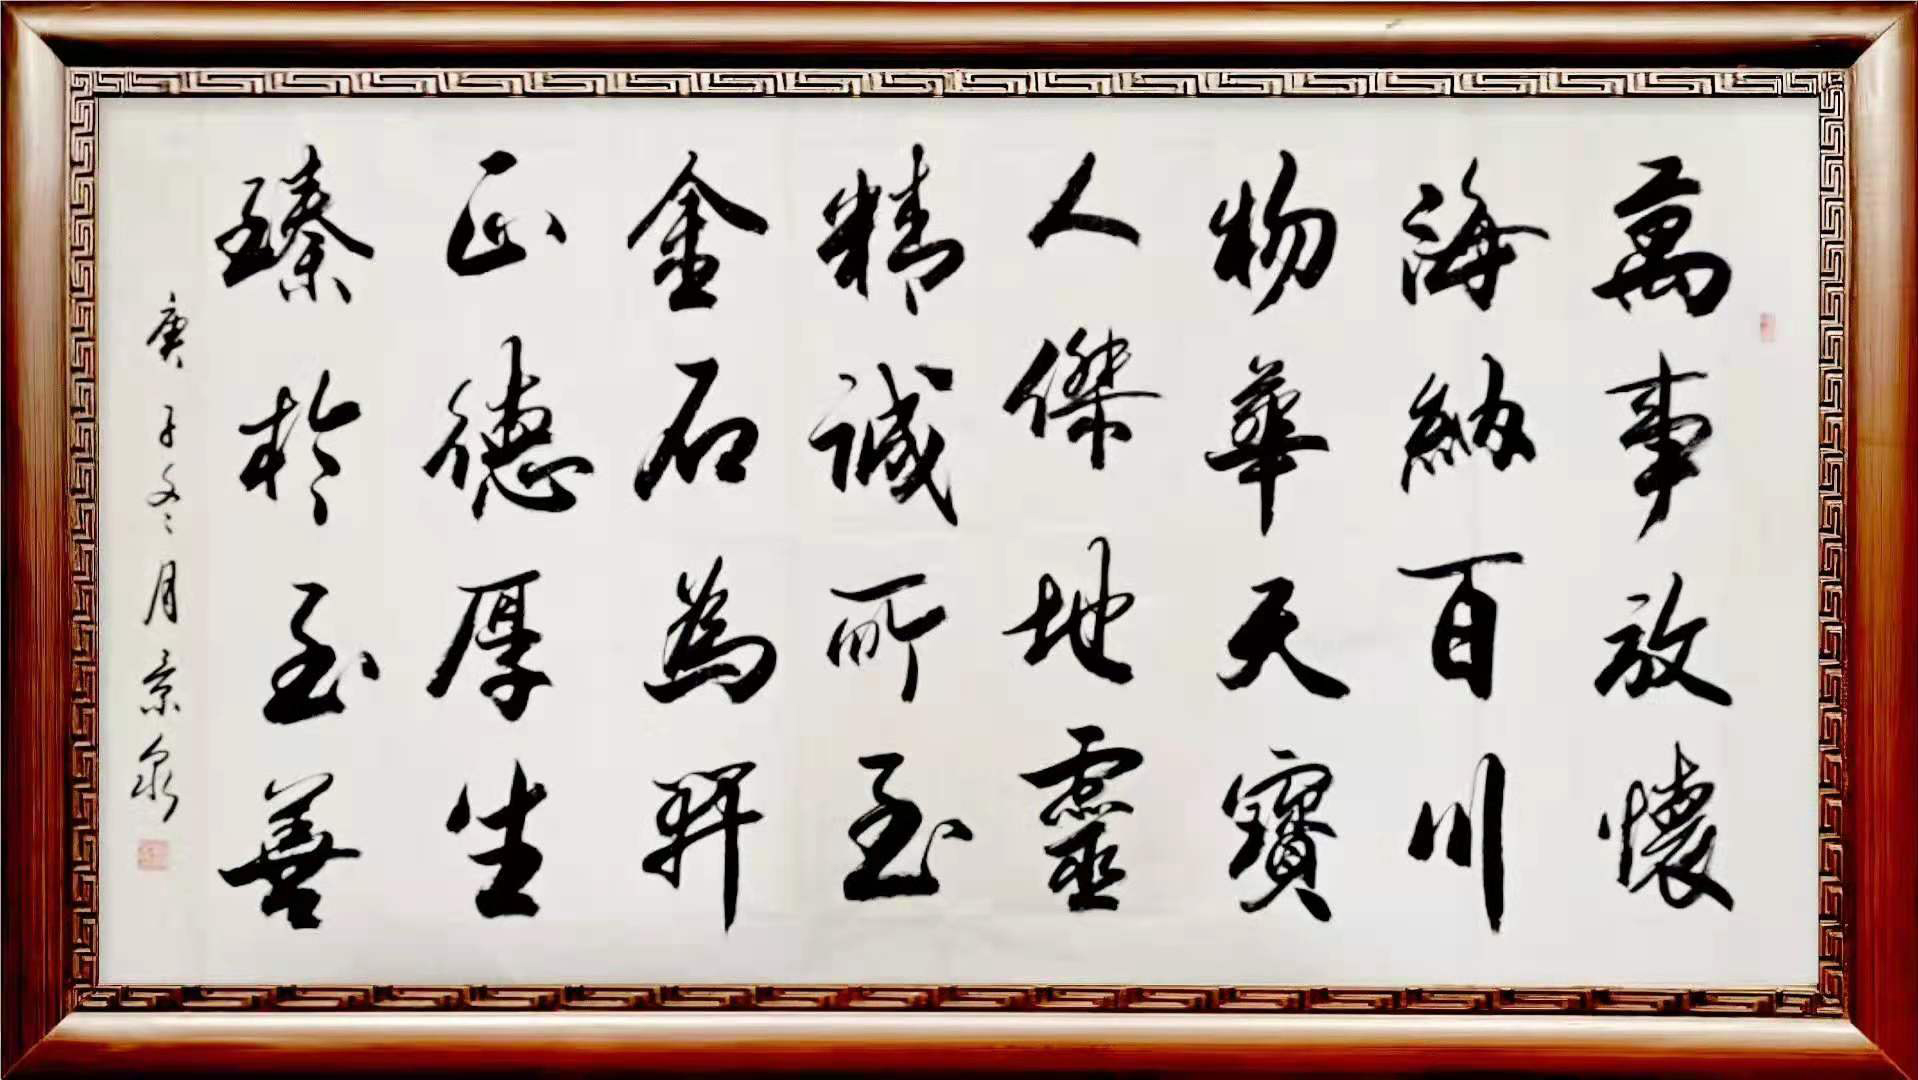 萬事放懷
海納百川
物華天寶
人傑地靈
精誠所至
金石為開
正德厚生
臻於至善
庚子冬月京泉